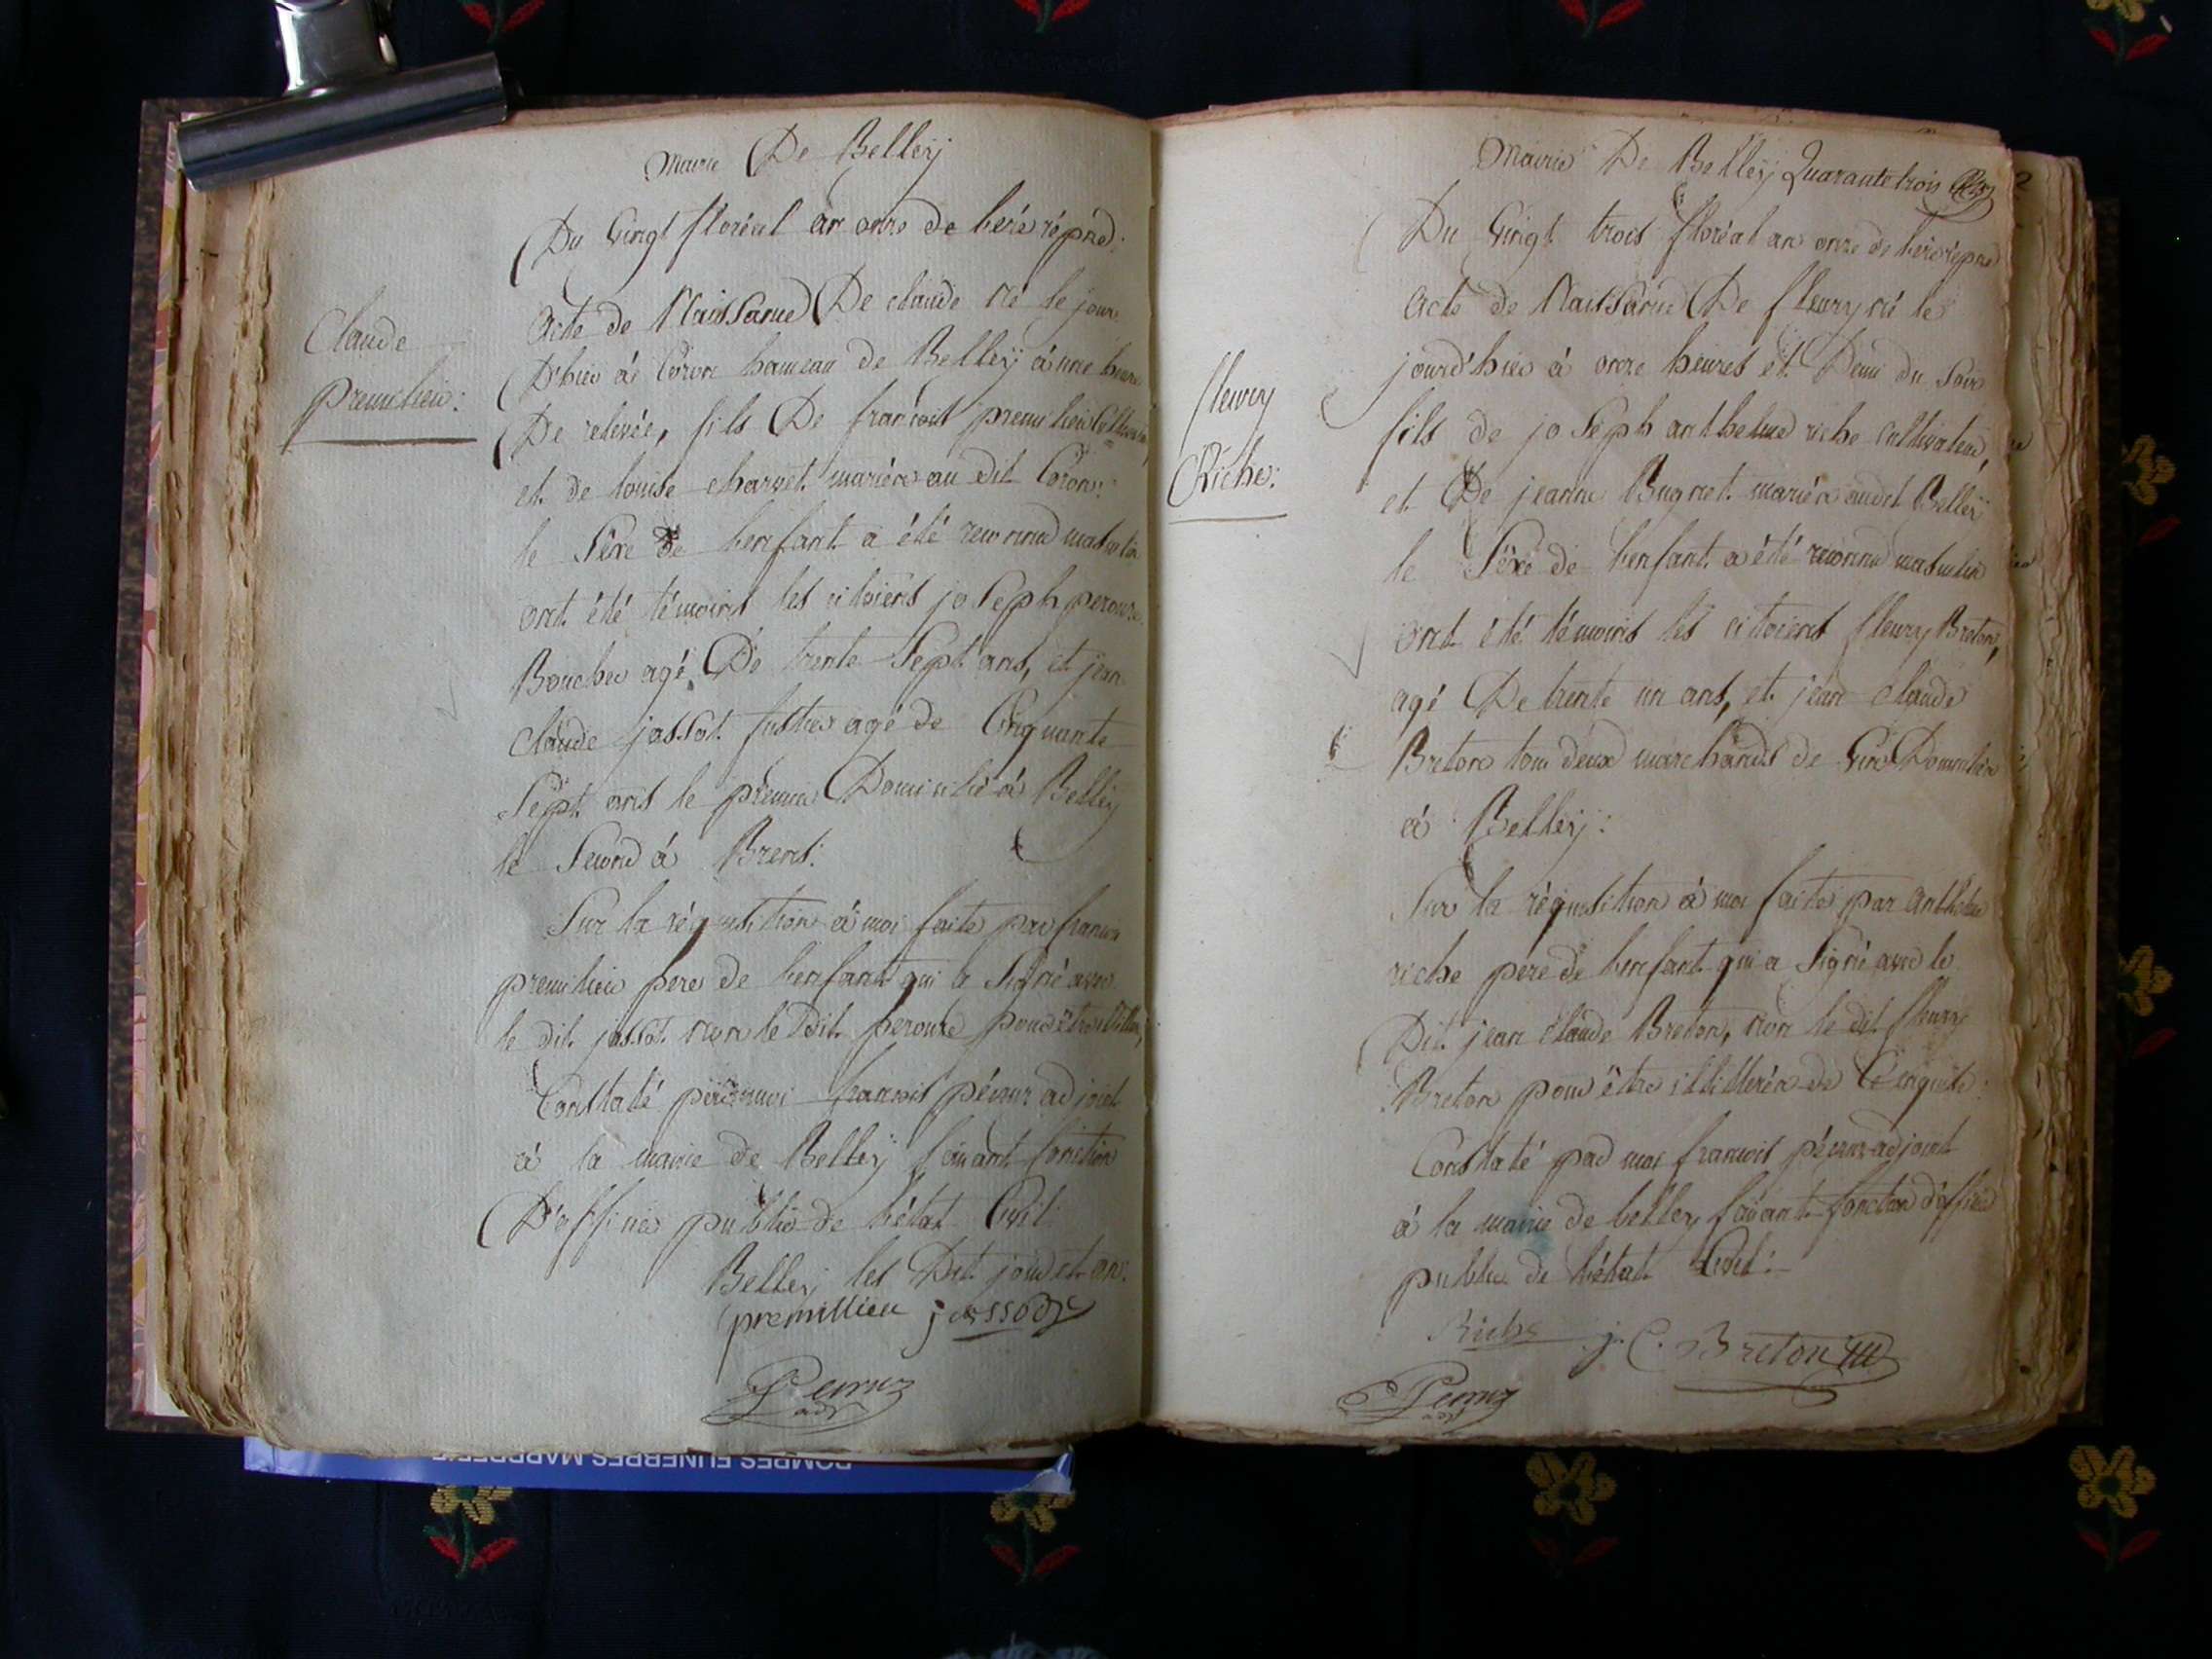 Mairie De Belleÿ
Du Vingt floréal an onze de l'ere répne:
Claude
premilieu:
acte de Naissance De claude né le jour
D'hier à Coron hameau de Belleÿ à une heure
De relevée, fils De francois premilieu Cultivateur,
et de louise charvet mariés au dit Coron:
le Sexe de l'enfant a été reconnu masculin
ont été témoins les citoiens joseph perouze
Boucher agé De trente Sept ans, et jean
claude jassot fustier agé de Cinquante
Sept ans le premier Domicilié à Belleÿ
le Second à Brens:
Sur la réquisition à moi faite par francois
premilieu pere de l'enfant qui a Signé avec
le dit jassot non le Dit perouze pour être illitéré,
Constaté par moi francois péruz adjoint
à la mairie de Belleÿ faisant fonction
D'officier public de l'état Civil
Belleÿ les Dit jour et an:
premillieu jassod
Perruz
adjt
Mairie De Belleÿ Quarante trois
Du Vingt trois floréal an onze de l'ere répne
fleury
Riche:
acte de Naissance De fleury né le
jourd'hier à onze heures et Demi du Soir
fils de joseph anthelme riche cultivateur,
et De jeanne Bugnet mariés audit Belleÿ
le Sexe de l'enfant a été reconnu masculin
ont été témoins les citoiens fleury Breton,
agé De trente un ans, et jean claude
Breton tous deux marchands de Vin Domiciliés
à Belleÿ:
Sur la réquisition à moi faite par anthelme
riche pere de l'enfant qui a Signé avec le
Dit jean claude Breton, non le dit fleury
Breton pour être illitéré de enquis:
Constaté par moi francois péruz adjoint
à la mairie de belley faisant fonction d'officier
public de l'état Civil:
Riche j. C. Breton
Perruz
adjt
POMPES FUNEBRES